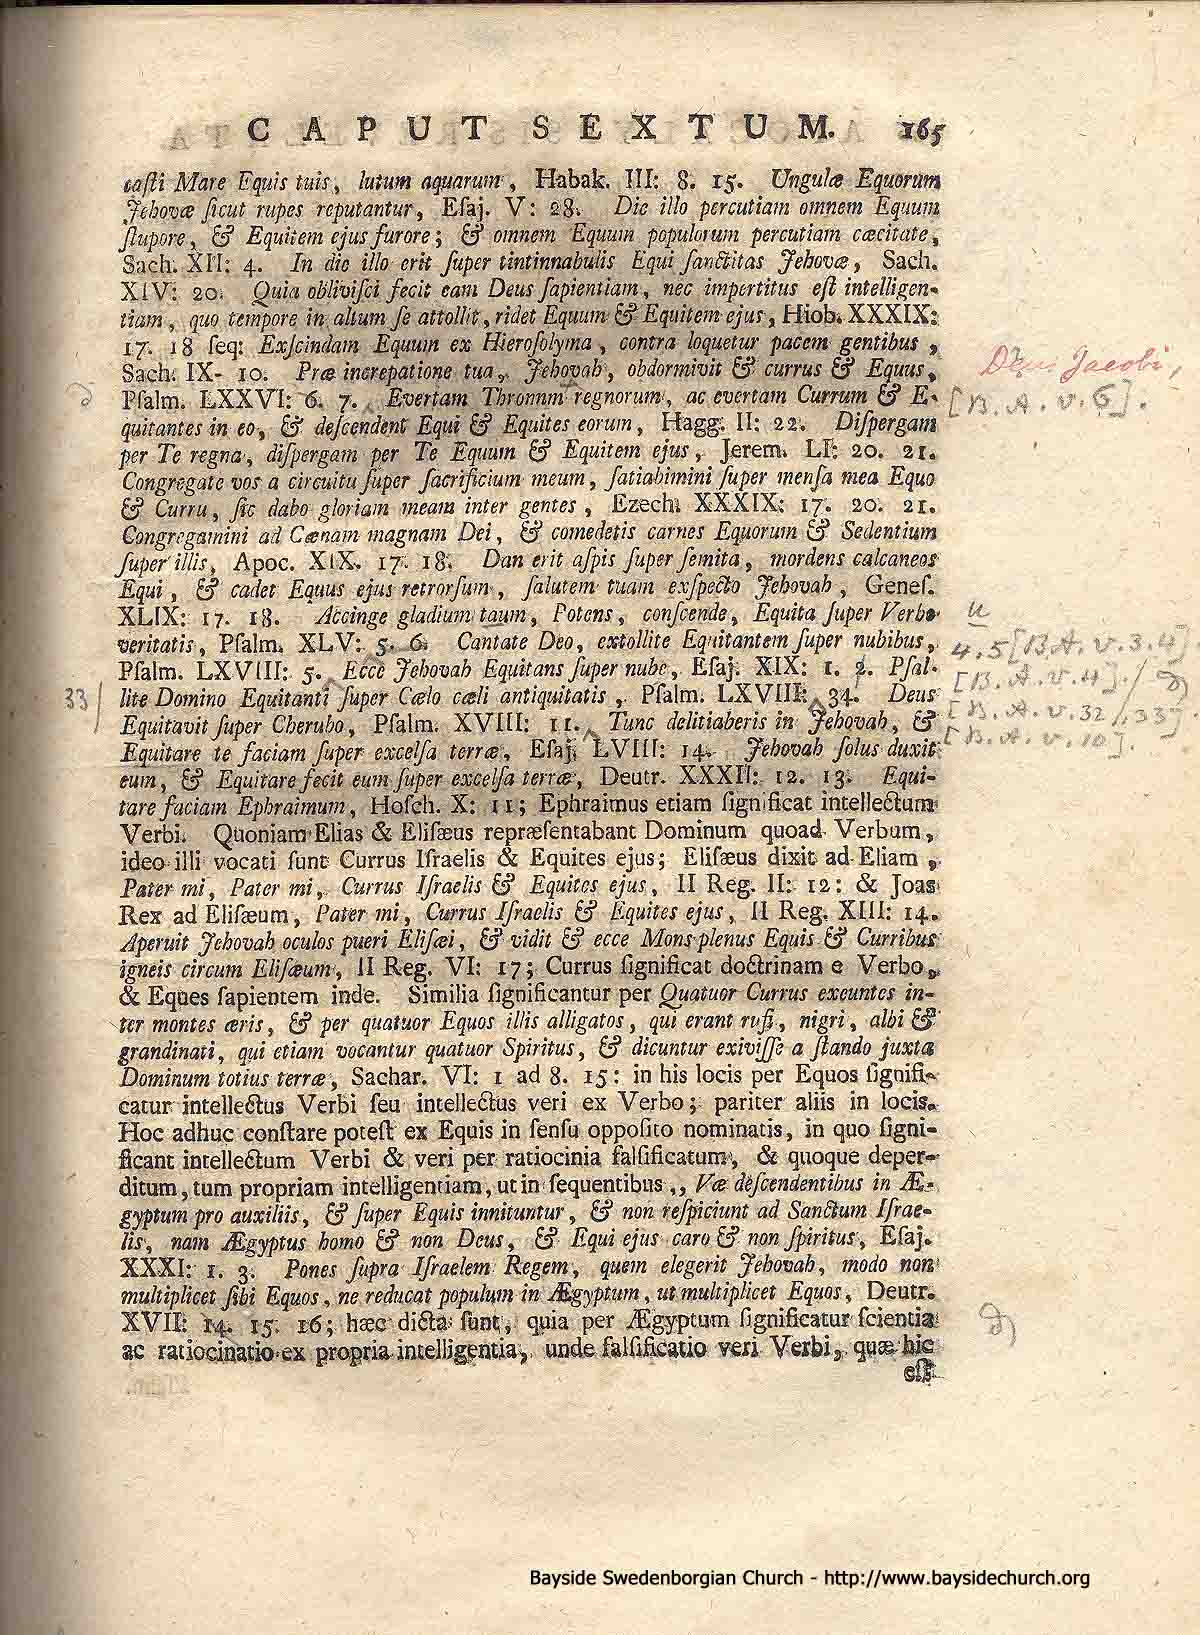 CAPUT SEXTUM. 165
casti Mare Equis tuis, lutum aquarum, Habak. III: 8. 15. Ungulæ Equorum
Jehovæ ſicut rupes reputantur, Eſaj. V: 28. Die illo percutiam omnem Equum
ſtupore, & Equitem ejus furore; & omnem Equum populorum percutiam cæcitate,
Sach. XII: 4. In die illo erit ſuper tintinnabulis Equi ſanctitas Jehovæ, Sach.
XIV: 20. Quia obliviſci fecit eam Deus ſapientiam, nec impertitus eſt intelligen-
tiam, quo tempore in altum ſe attollit, ridet Equum & Equitem ejus, Hiob. XXXIX:
17. 18 ſeq: Exſcindam Equum ex Hieroſolyma, contra loquetur pacem gentibus,
Sach. IX- 10. Præ increpatione tua, Jehovah, obdormivit & currus & Equus,
Deus Jacobi,
Pſalm. LXXVI: 6. 7. Evertam Thronum regnorum, ac evertam Currum & E-
[B.A.v.6].
quitantes in eo, & deſcendent Equi & Equites eorum, Hagg. II: 22. Diſpergam
per Te regna, diſpergam per Te Equum & Equitem ejus, Jerem. LI: 20. 21.
Congregate vos a circuitu ſuper ſacrificium meum, ſatiabimini ſuper menſa mea Equo
& Curru, ſic dabo gloriam meam inter gentes, Ezech. XXXIX: 17. 20. 21.
Congregamini ad Cœnam magnam Dei, & comedetis carnes Equorum & Sedentium
ſuper illis, Apoc. XIX. 17. 18. Dan erit aſpis ſuper ſemita, mordens calcaneos
Equi, & cadet Equus ejus retrorſum, ſalutem tuam exſpecto Jehovah, Geneſ.
XLIX: 17. 18. Accinge gladium taum, Potens, conſcende, Equita ſuper Verbo
u
veritatis, Pſalm. XLV: 5. 6. Cantate Deo, extollite Equitantem ſuper nubibus,
4.5[B.A.v.3.4].
Pſalm. LXVIII: 5. Ecce Jehovah Equitans ſuper nube, Eſaj. XIX: 1. 2. Pſal-
[B.A.v.4].
33/ lite Domino Equitanti ſuper Cælo cæli antiquitatis, Pſalm. LXVIII: 34. Deus
[B.A.v.32/33].
Equitavit ſuper Cherubo, Pſalm. XVIII: 11. Tunc delitiaberis in Jehovah, &
[B.A.v.10].
Equitare te faciam ſuper excelſa terræ, Eſaj. LVIII: 14. Jehovah ſolus duxit
eum, & Equitare fecit eum ſuper excelſa terræ, Deutr. XXXII: 12. 13. Equi-
tare faciam Ephraimum, Hoſch. X: 11; Ephraimus etiam ſignificat intellectum
Verbi. Quoniam Elias & Eliſæus repræſentabant Dominum quoad Verbum,
ideo illi vocati ſunt Currus Iſraelis & Equites ejus; Eliſæus dixit ad Eliam,
Pater mi, Pater mi, Currus Iſraelis & Equites ejus, II Reg. II: 12: & Joas
Rex ad Eliſæum, Pater mi, Currus Iſraelis & Equites ejus, II Reg. XIII: 14.
Aperuit Jehovah oculos pueri Eliſæi, & vidit & ecce Mons plenus Equis & Curribus
igneis circum Eliſæum, II Reg. VI: 17; Currus ſignificat doctrinam e Verbo,
& Eques ſapientem inde. Similia ſignificantur per Quatuor Currus exeuntes in-
ter montes æris, & per quatuor Equos illis alligatos, qui erant rufi, nigri, albi &
grandinati, qui etiam vocantur quatuor Spiritus, & dicuntur exiviſſe a ſtando juxta
Dominum totius terræ, Sachar. VI: 1 ad 8. 15: in his locis per Equos ſignifi-
catur intellectus Verbi ſeu intellectus veri ex Verbo; pariter aliis in locis.
Hoc adhuc conſtare poteſt ex Equis in ſenſu oppoſito nominatis, in quo ſigni-
ficant intellectum Verbi & veri per ratiocinia falſificatum, & quoque deper-
ditum, tum propriam intelligentiam, ut in ſequentibus,, Væ deſcendentibus in Æ-
gyptum pro auxiliis, & ſuper Equis innituntur, & non reſpiciunt ad Sanctum Iſrae-
lis, nam Ægyptus homo & non Deus, & Equi ejus caro & non ſpiritus, Eſaj.
XXXI: 1. 3. Pones ſupra Iſraelem Regem, quem elegerit Jehovah, modo non
multiplicet ſibi Equos, ne reducat populum in Ægyptum, ut multiplicet Equos, Deutr.
XVII: 14. 15. 16; hæc dicta ſunt, quia per Ægyptum ſignificatur ſcientia
ac ratiocinatio ex propria intelligentia, unde falſificatio veri Verbi, quæ hic
eſt
Bayside Swedenborgian Church - http://www.baysidechurch.org